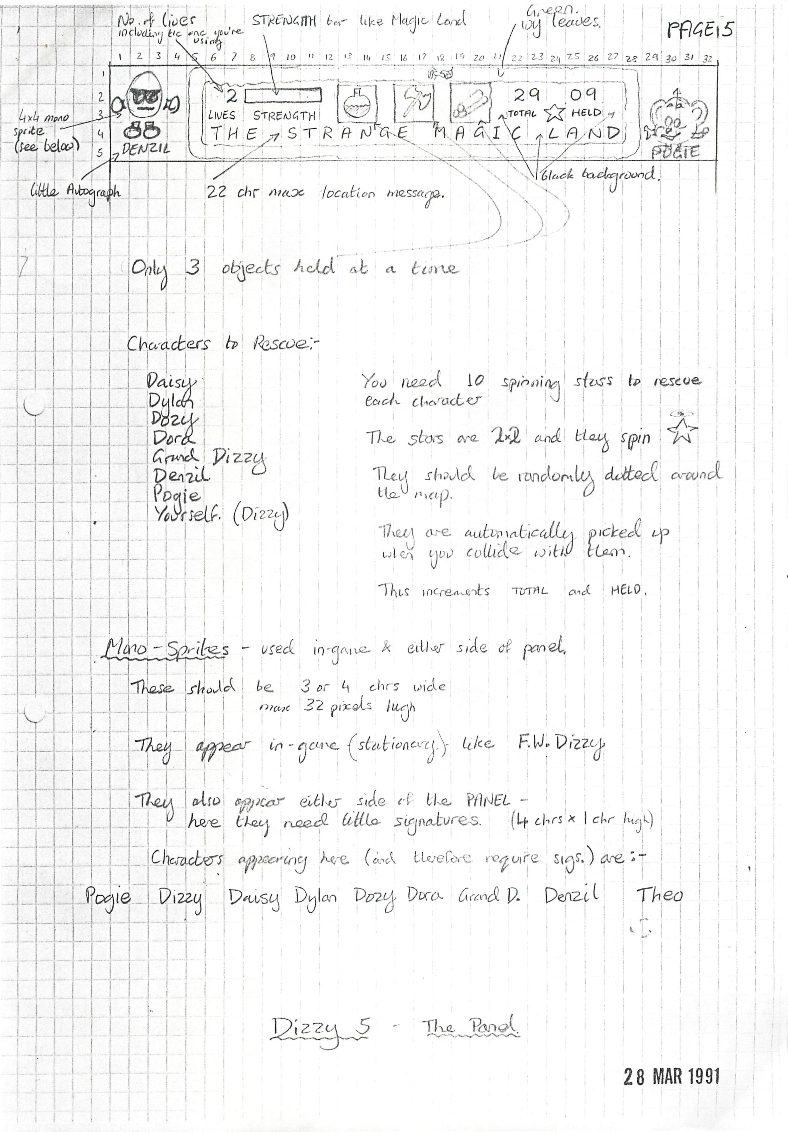 No. of lives
including the one you're
using
STRENGTH bar like Magic Land
Green.
ivy leaves.
PAGE 5
1 2 3 4 5 6 7 8 9 10 11 12 13 14 15 16 17 18 19 20 21 22 23 24 25 26 27 28 29 30 31 32
1
2
3
4
5
2
29 09
LIVES STRENGTH TOTAL HELD
THE STRANGE MAGIC LAND
4x4 mono
sprite
(see below)
DENZIL
POGIE
little Autograph
22 chr max location message.
black background.
Only 3 objects held at a time
Characters to Rescue:-
Daisy
Dylan
Dozy
Dora
Grand Dizzy
Denzil
Pogie
Yourself. (Dizzy)
You need 10 spinning stars to rescue
each character
The stars are 2x2 and they spin
They should be randomly dotted around
the map.
They are automatically picked up
when you collide with them.
This increments TOTAL and HELD.
Mono-Sprites - used in-game & either side of panel.
These should be 3 or 4 chrs wide
max 32 pixels high
They appear in-game (stationary) like F.W. Dizzy
They also appear either side of the PANEL -
here they need little signatures. (4 chrs x 1 chr high)
Characters appearing here (and therefore require sigs.) are :-
Pogie Dizzy Daisy Dylan Dozy Dora Grand D. Denzil Theo
Dizzy 5 - The Panel
28 MAR 1991